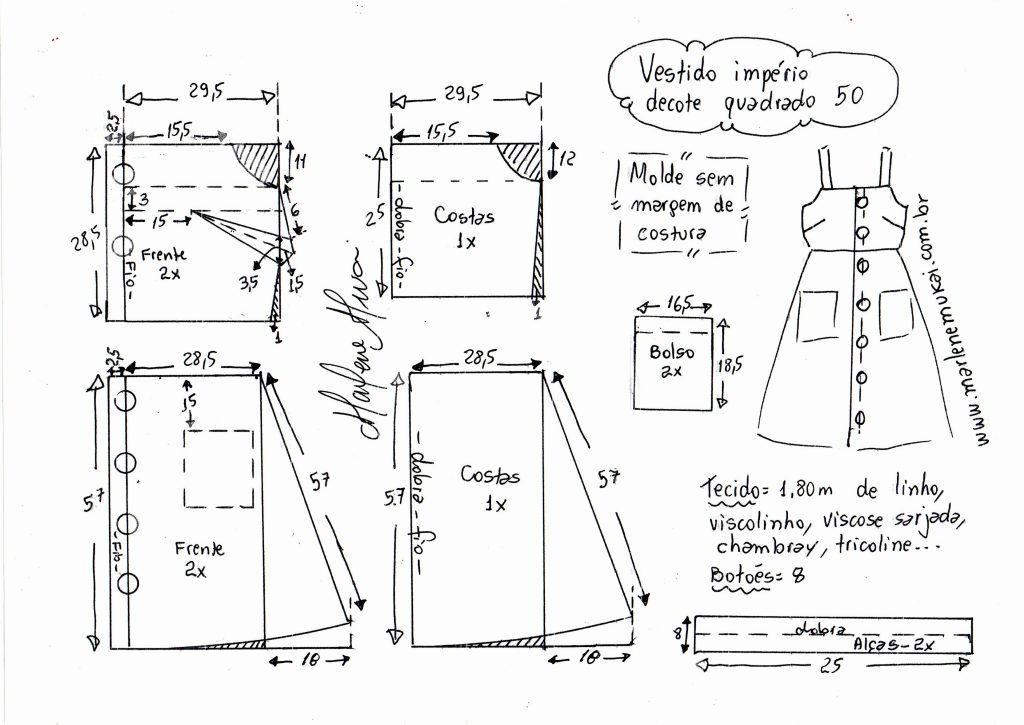 Vestido império
decote quadrado 50
29,5
2,5
15,5
11
3
15
6
28,5
Frente
2x
- Fio -
3,5
1,5
1
29,5
15,5
12
25
- dobra - fio -
Costas
1x
1
Molde sem
margem de
costura
www.marlenemukai.com.br
16,5
Bolso
2x
18,5
2,5
28,5
15
57
57
- Fio -
Frente
2x
18
28,5
57
- dobra - fio -
Costas
1x
57
18
Tecido= 1,80m de linho,
viscolinho, viscose sarjada,
chambray, tricoline...
Botões= 8
8
dobra
Alças-2x
25